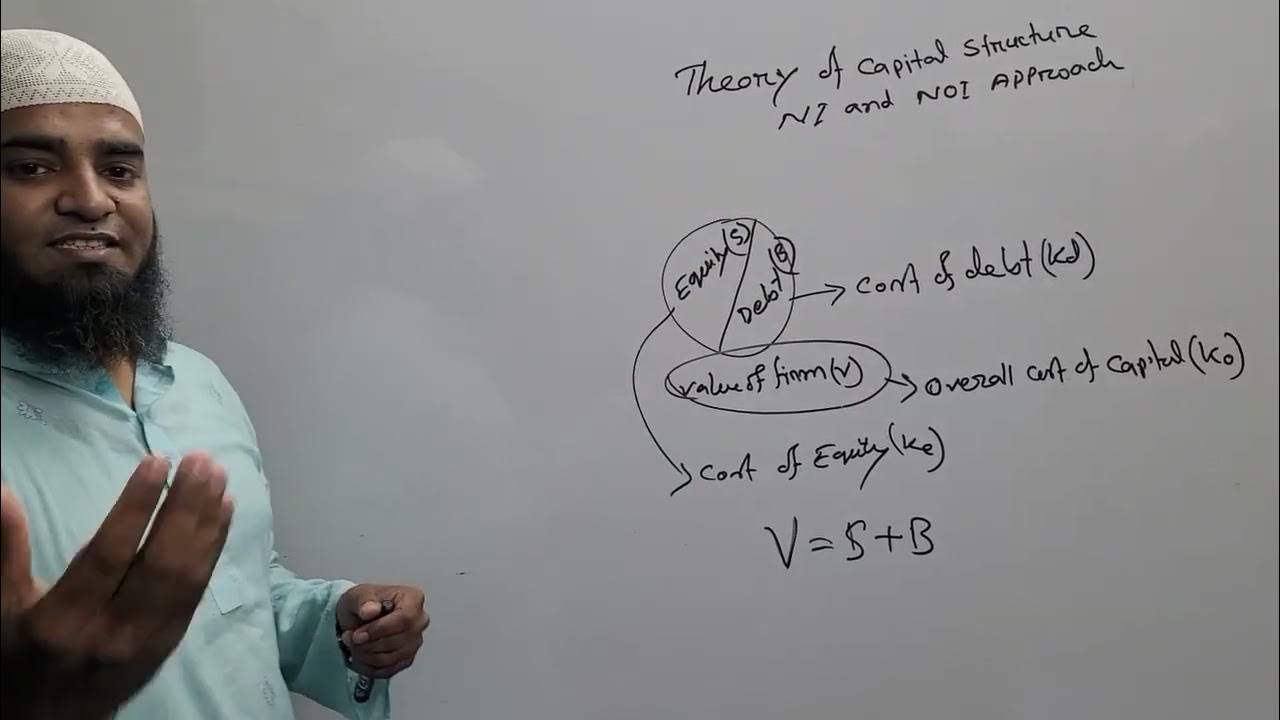 Theory of capital structure
NI and NOI APProach
Equity(S)
Debt(B)
cost of debt(Kd)
value of firm(V)
overall cost of capital(Ko)
cost of Equity(Ke)
V=S+B